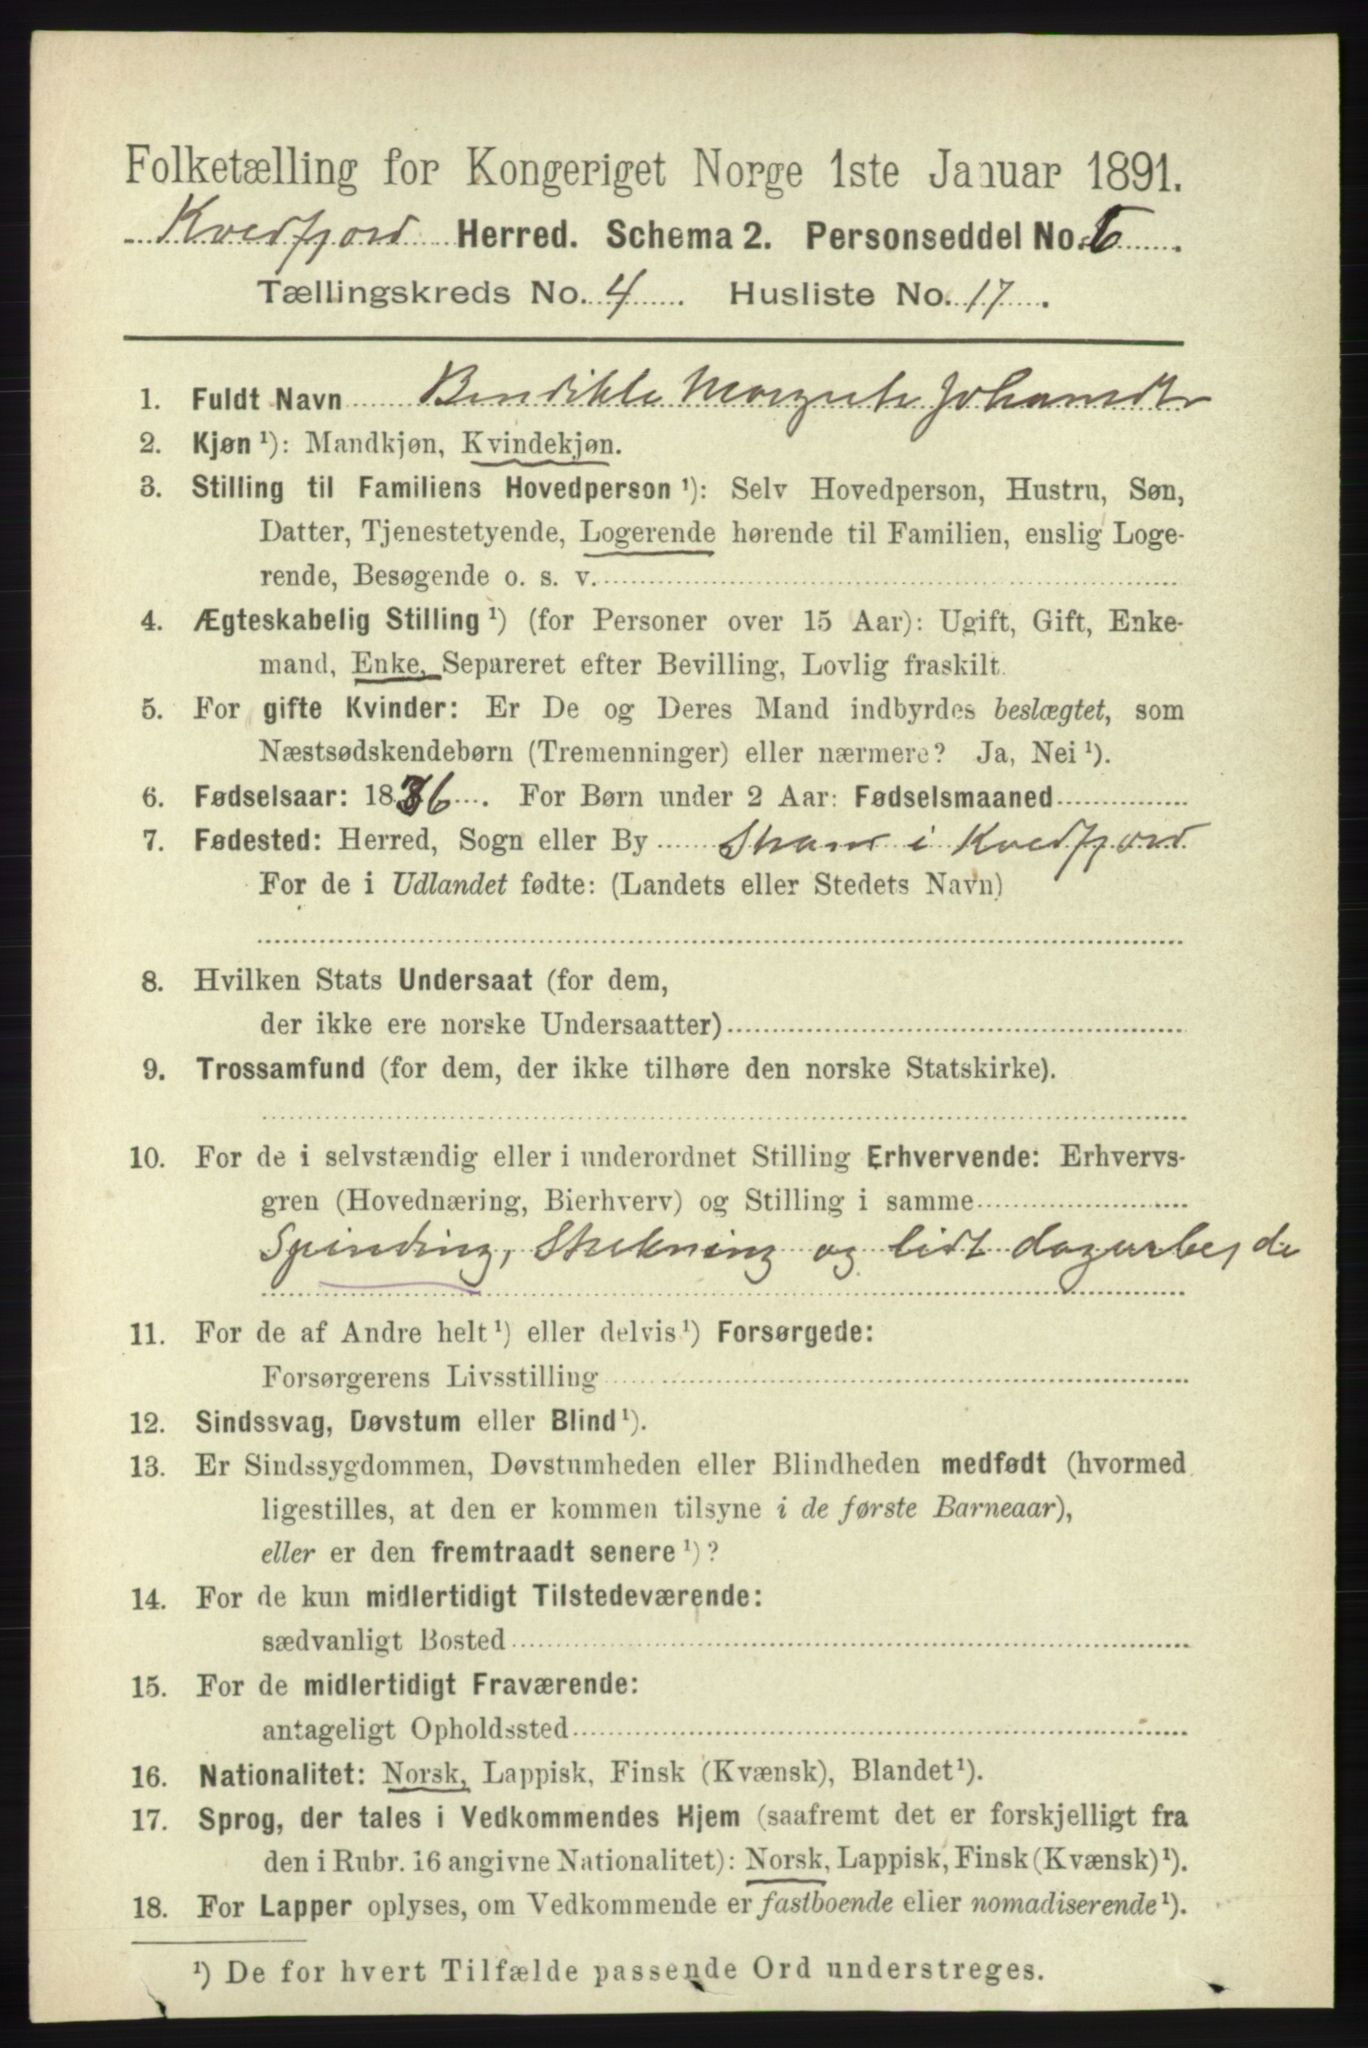 Folketælling for Kongeriget Norge 1ste Januar 1891.
Kvedfjord Herred. Schema 2. Personseddel No. 6
Tællingskreds No. 4 Husliste No. 17.
1. Fuldt Navn Bendikte Margrete Johansdtr
2. Kjøn ¹): Mandkjøn, Kvindekjøn.
3. Stilling til Familiens Hovedperson ¹): Selv Hovedperson, Hustru, Søn,
Datter, Tjenestetyende, Logerende hørende til Familien, enslig Loge-
rende, Besøgende o. s. v.
4. Ægteskabelig Stilling ¹) (for Personer over 15 Aar): Ugift, Gift, Enke-
mand, Enke, Separeret efter Bevilling, Lovlig fraskilt.
5. For gifte Kvinder: Er De og Deres Mand indbyrdes beslægtet, som
Næstsødskendebørn (Tremenninger) eller nærmere? Ja, Nei ¹).
6. Fødselsaar: 1836. For Børn under 2 Aar: Fødselsmaaned
7. Fødested: Herred, Sogn eller By Strand i Kvedfjord
For de i Udlandet fødte: (Landets eller Stedets Navn)
8. Hvilken Stats Undersaat (for dem,
der ikke ere norske Undersaatter)
9. Trossamfund (for dem, der ikke tilhøre den norske Statskirke).
10. For de i selvstændig eller i underordnet Stilling Erhvervende: Erhvervs-
gren (Hovednæring, Bierhverv) og Stilling i samme
Spinding, Strikning og lidt dagarbejde
11. For de af Andre helt ¹) eller delvis ¹) Forsørgede:
Forsørgerens Livsstilling
12. Sindssvag, Døvstum eller Blind ¹).
13. Er Sindssygdommen, Døvstumheden eller Blindheden medfødt (hvormed
ligestilles, at den er kommen tilsyne i de første Barneaar),
eller er den fremtraadt senere ¹)?
14. For de kun midlertidigt Tilstedeværende:
sædvanligt Bosted
15. For de midlertidigt Fraværende:
antageligt Opholdssted
16. Nationalitet: Norsk, Lappisk, Finsk (Kvænsk), Blandet ¹).
17. Sprog, der tales i Vedkommendes Hjem (saafremt det er forskjelligt fra
den i Rubr. 16 angivne Nationalitet): Norsk, Lappisk, Finsk (Kvænsk) ¹).
18. For Lapper oplyses, om Vedkommende er fastboende eller nomadiserende ¹).
¹) De for hvert Tilfælde passende Ord understreges.